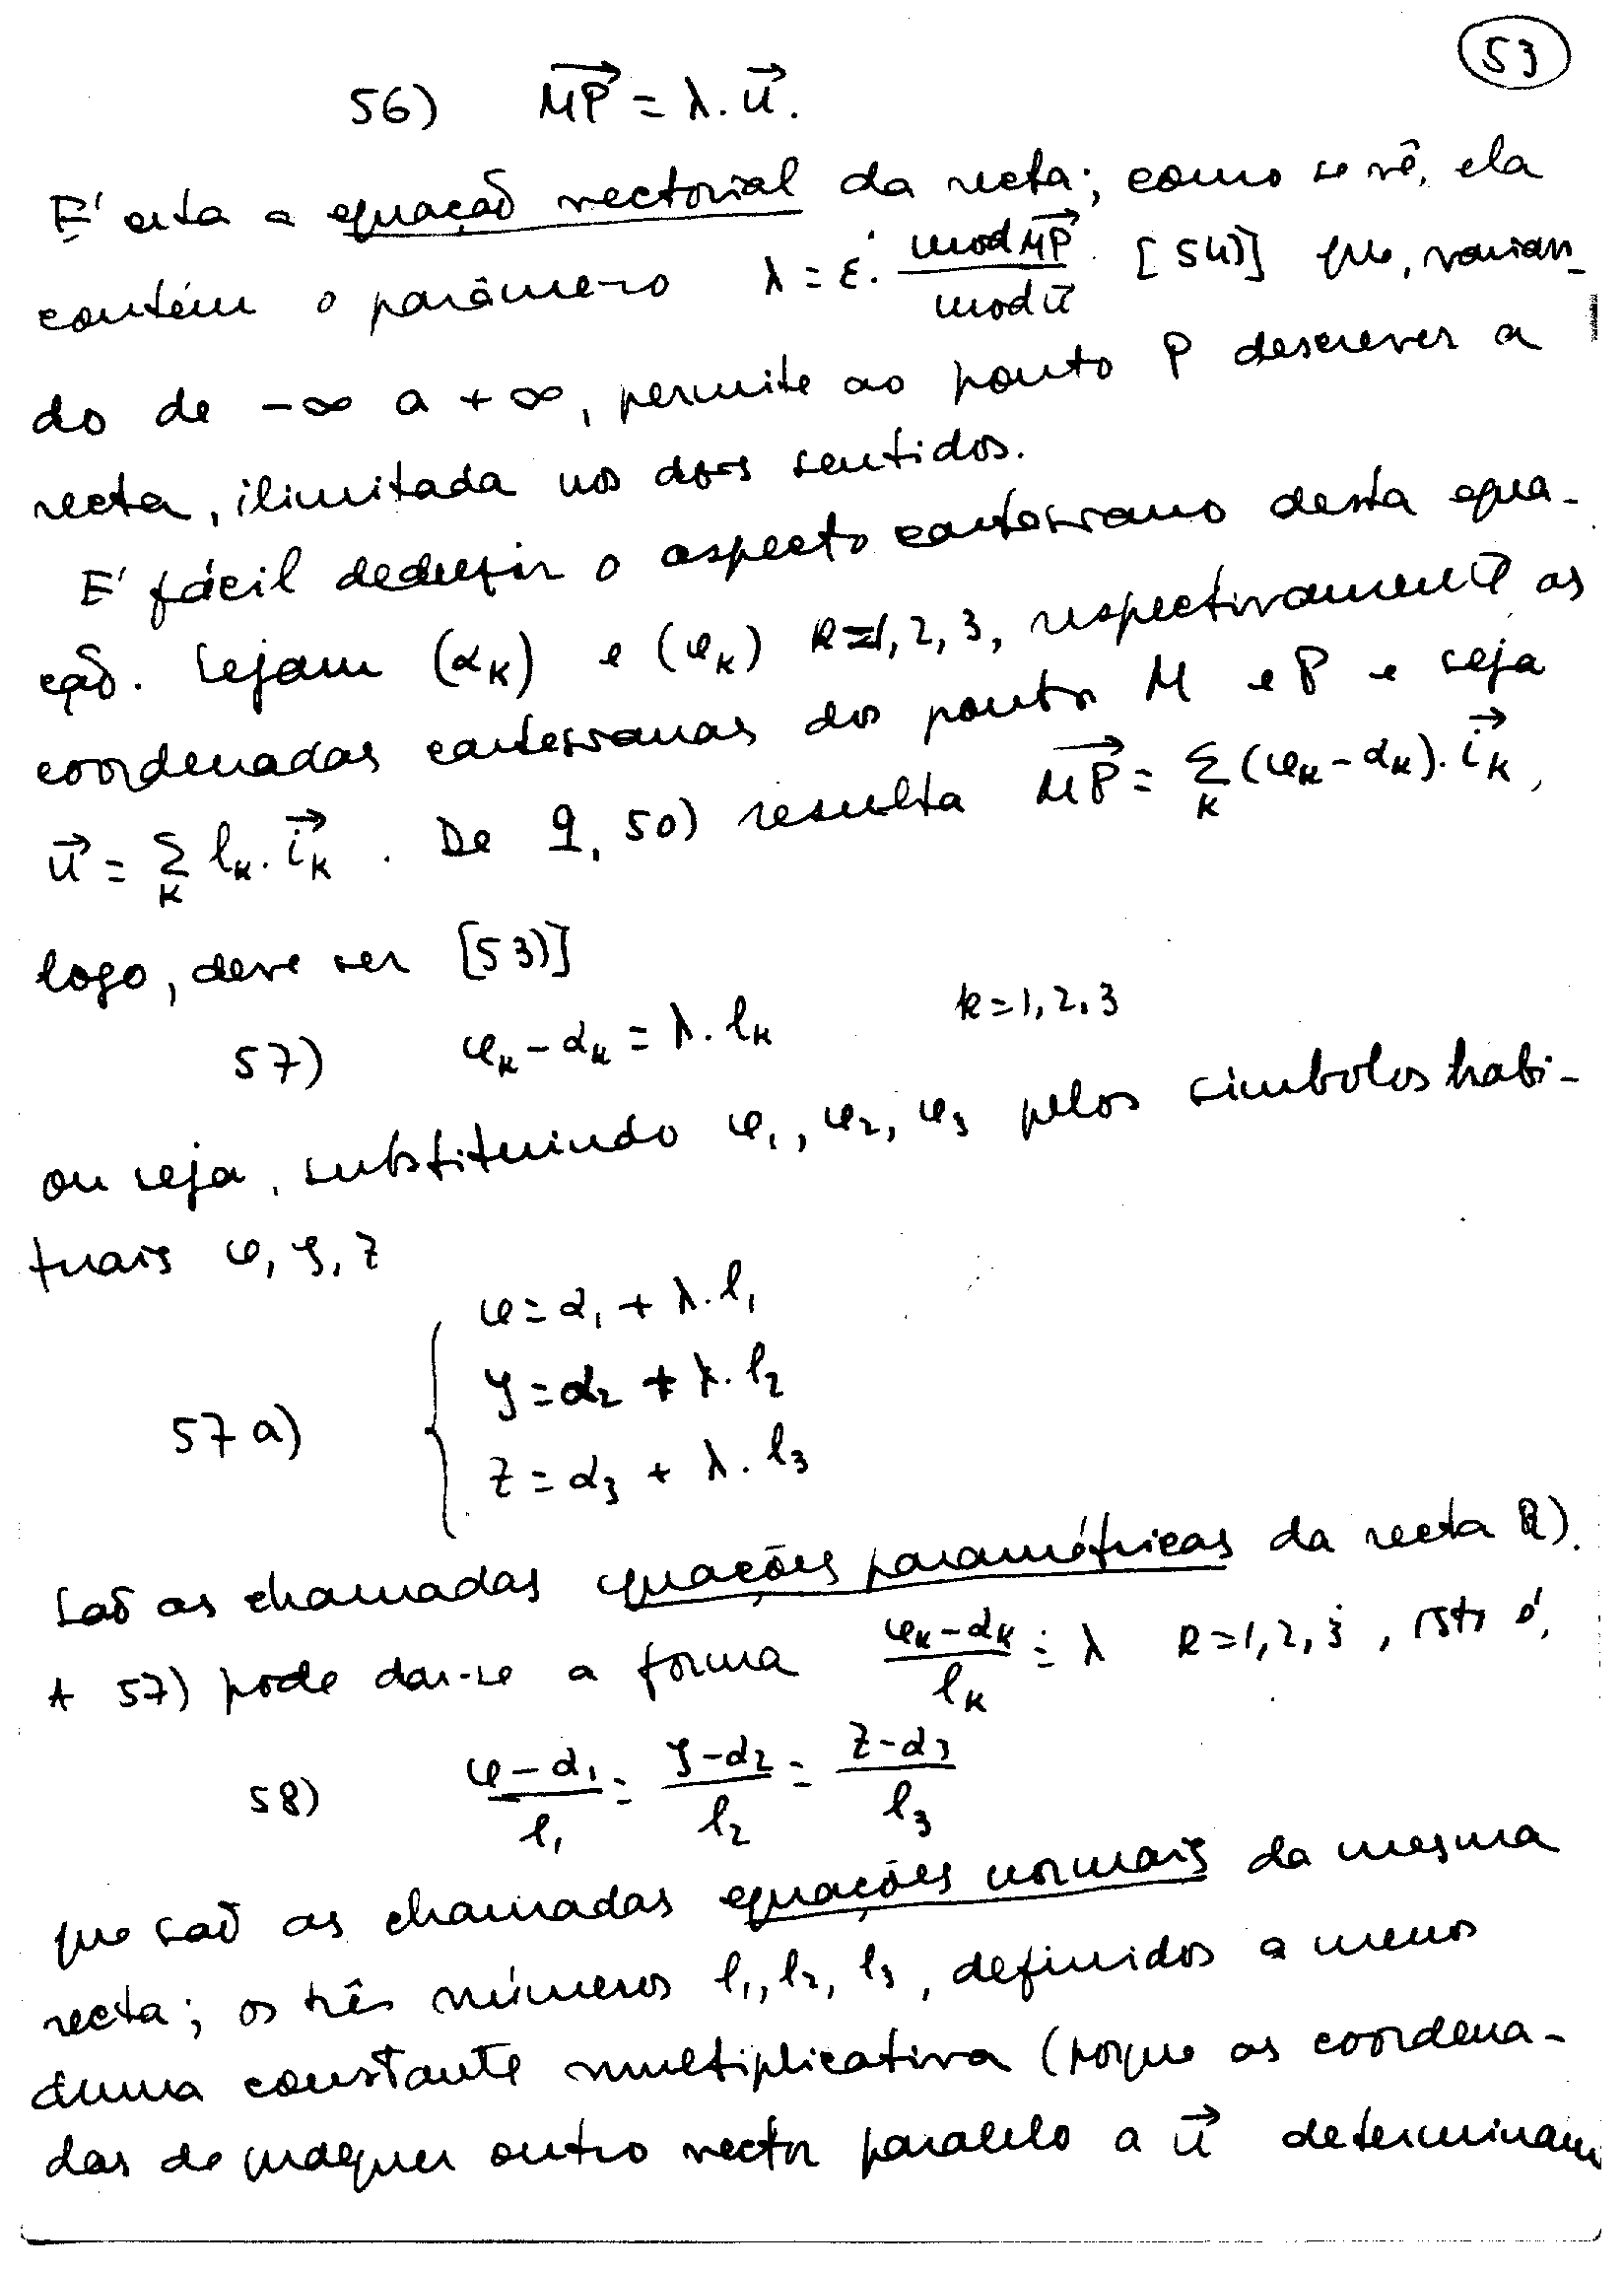 53
56) $\overrightarrow{MP} = \lambda . \vec{u}$.
É esta a equação vectorial da recta; como se vê, ela
contém o parâmetro $\lambda = \varepsilon . \frac{mod \overrightarrow{MP}}{mod \vec{u}}$ [54)] que, varian-
do de $-\infty$ a $+\infty$, permite ao ponto P descrever a
recta, ilimitada nos dois sentidos.
É fácil deduzir o aspecto cartesiano desta equa-
ção. Sejam $(\alpha_k)$ e $(x_k)$ k=1, 2, 3, respectivamente as
coordenadas cartesianas dos pontos M e P e seja
$\vec{u} = \sum_k l_k . \vec{i_k}$. De 9, 50) resulta $\overrightarrow{MP} = \sum_k (x_k - \alpha_k) . \vec{i_k}$,
logo, deve ser [53)]
57) $x_k - \alpha_k = \lambda . l_k$ k=1, 2, 3
ou seja, substituindo $x_1, x_2, x_3$ pelos simbolos habi-
tuais x, y, z
57 a) $\begin{cases} x = \alpha_1 + \lambda . l_1 \\ y = \alpha_2 + \lambda . l_2 \\ z = \alpha_3 + \lambda . l_3 \end{cases}$
São as chamadas equações paramétricas da recta R).
A 57) pode dar-se a forma $\frac{x_k - \alpha_k}{l_k} = \lambda$ k=1, 2, 3, isto é,
58) $\frac{x - \alpha_1}{l_1} = \frac{y - \alpha_2}{l_2} = \frac{z - \alpha_3}{l_3}$
que são as chamadas equações normais da mesma
recta; os três números $l_1, l_2, l_3$, definidos a menos
duma constante multiplicativa (porque as coordena-
das de qualquer outro vector paralelo a $\vec{u}$ determinam